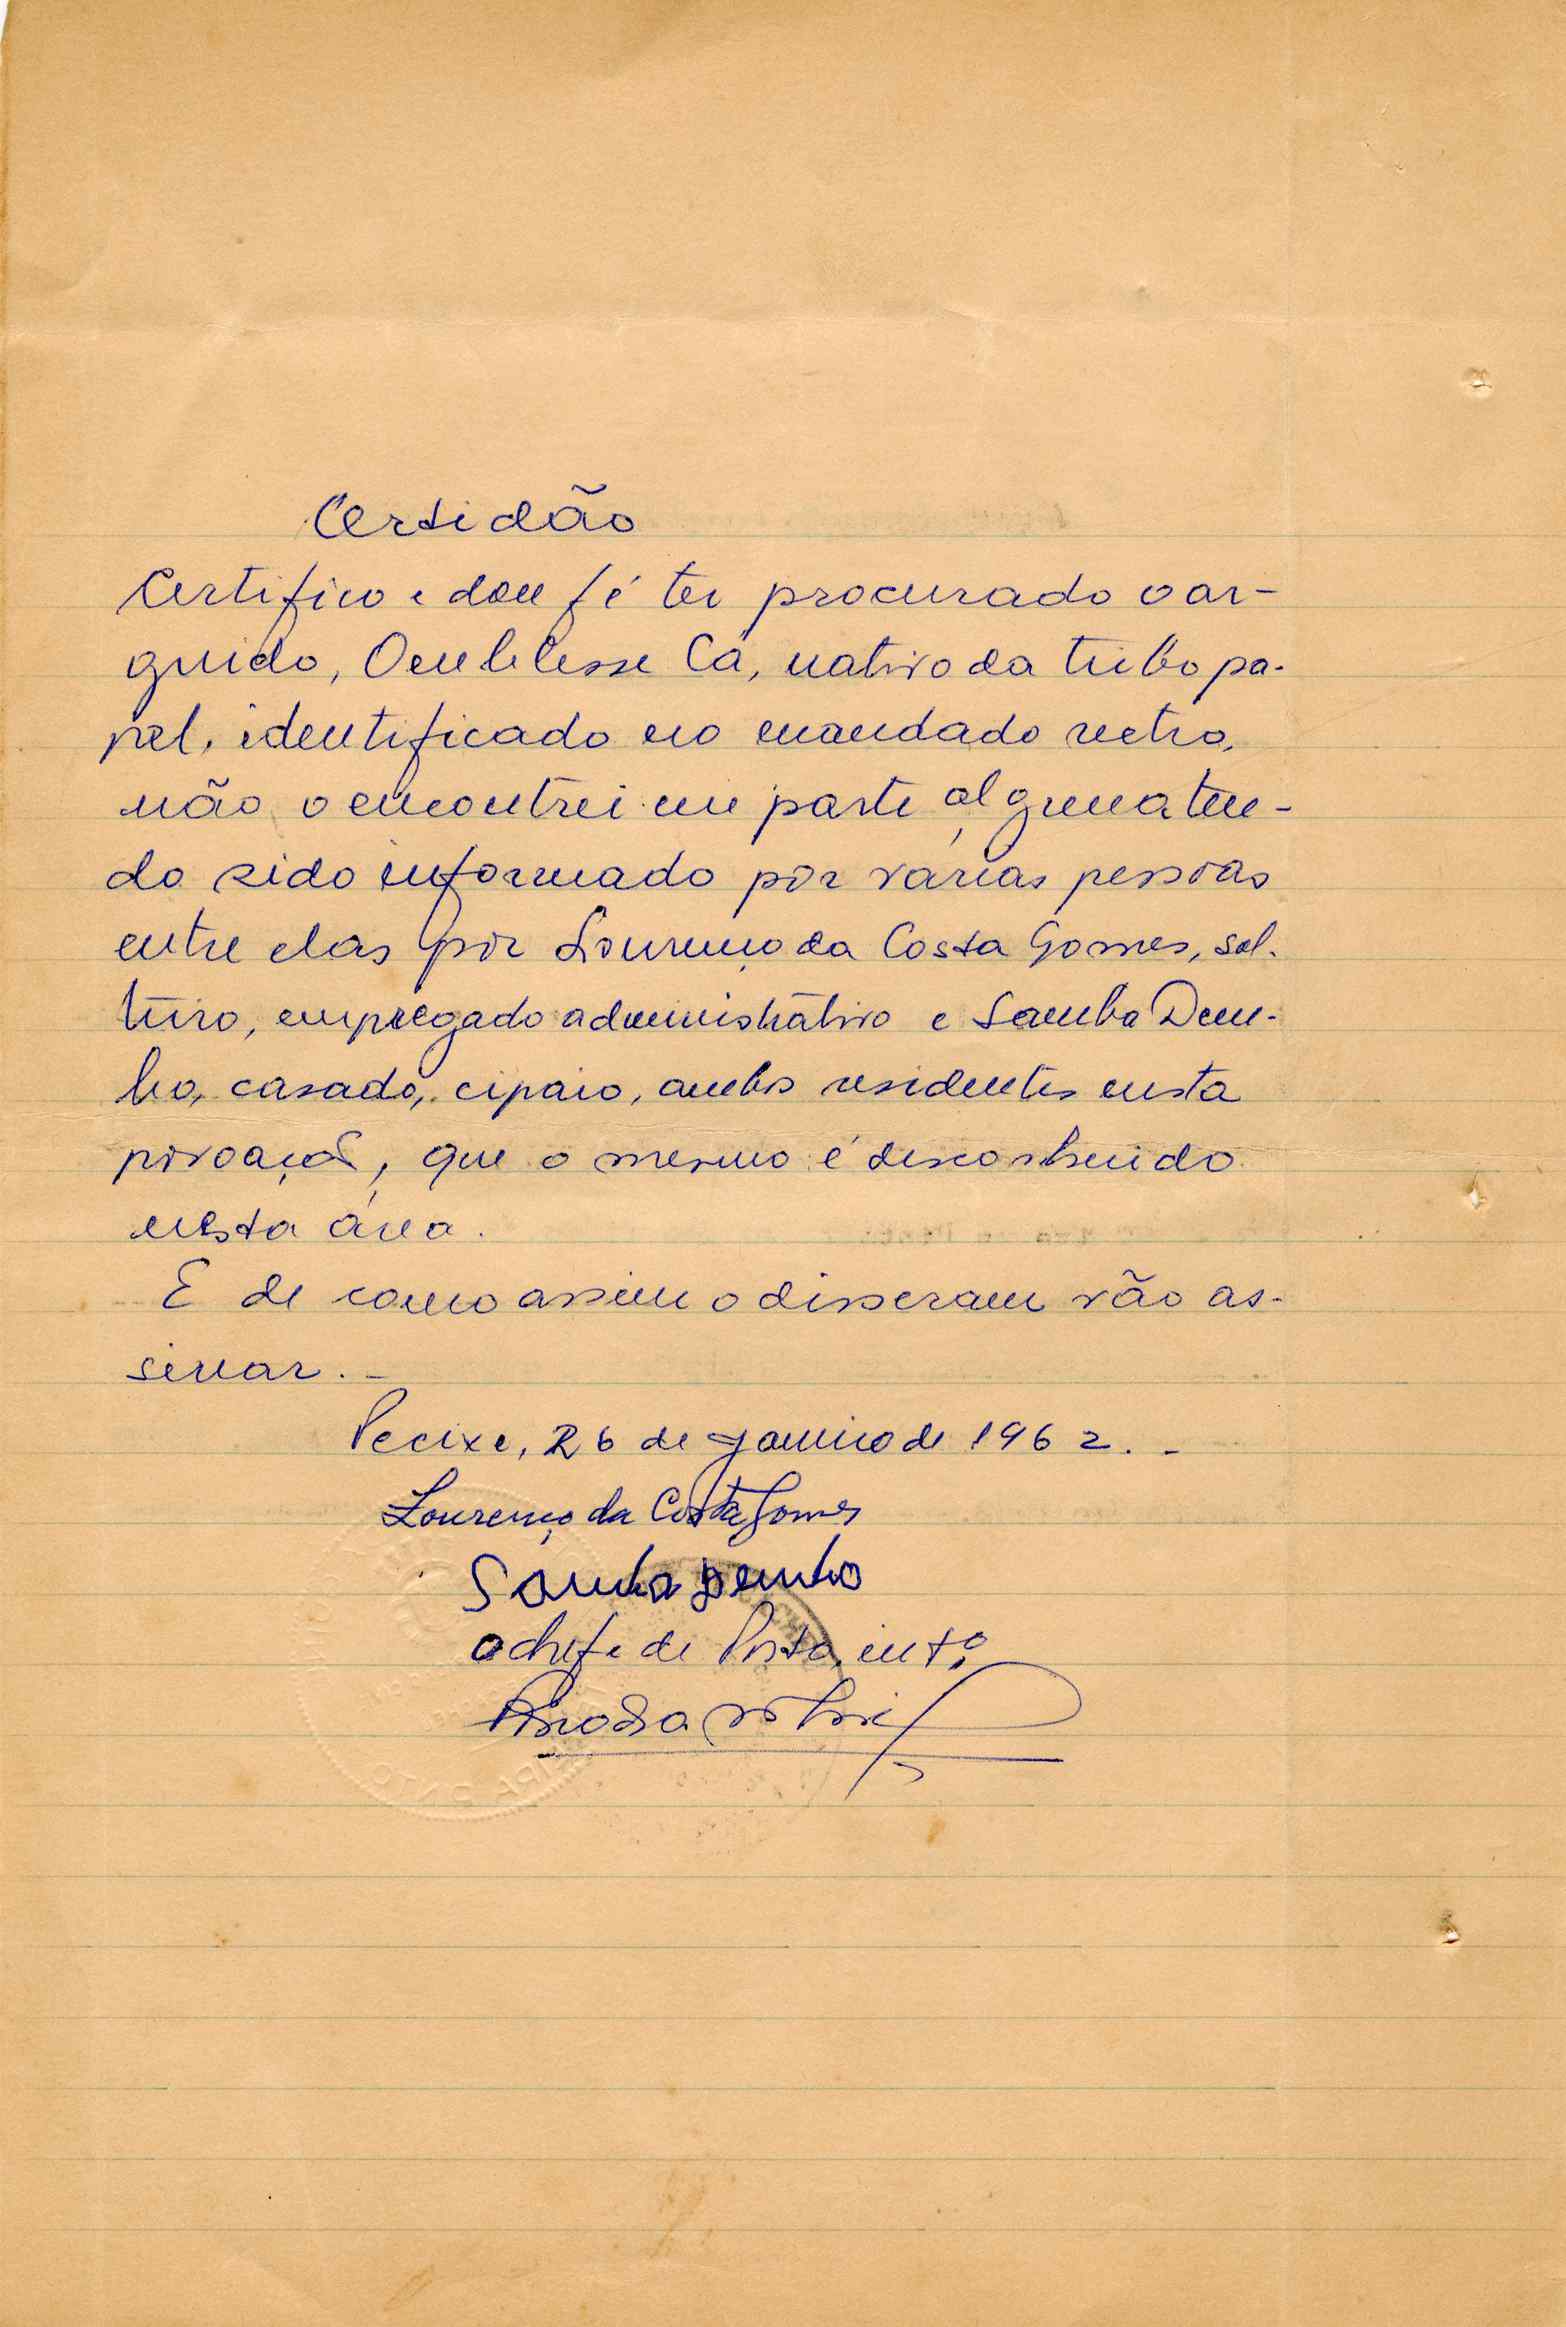 Certidão
Certifico e dou fé ter procurado o ar-
guido, Oemblesse Cá, nativo da tribo pa-
pel, identificado no mandado retro,
não o encontrei em parte alguma ten-
do sido informado por várias pessoas
entre elas por Lourenço da Costa Gomes, sol-
teiro, empregado administrativo e Samba Dem-
bo, casado, cipaio, ambos residentes nesta
povoação, que o mesmo é desconhecido
nesta área.
E de como assim o disseram vão as-
sinar.-
Pecixe, 26 de Janeiro de 1962.-
Lourenço da Costa Gomes
Samba Dembo
O chefe de Posto, intº